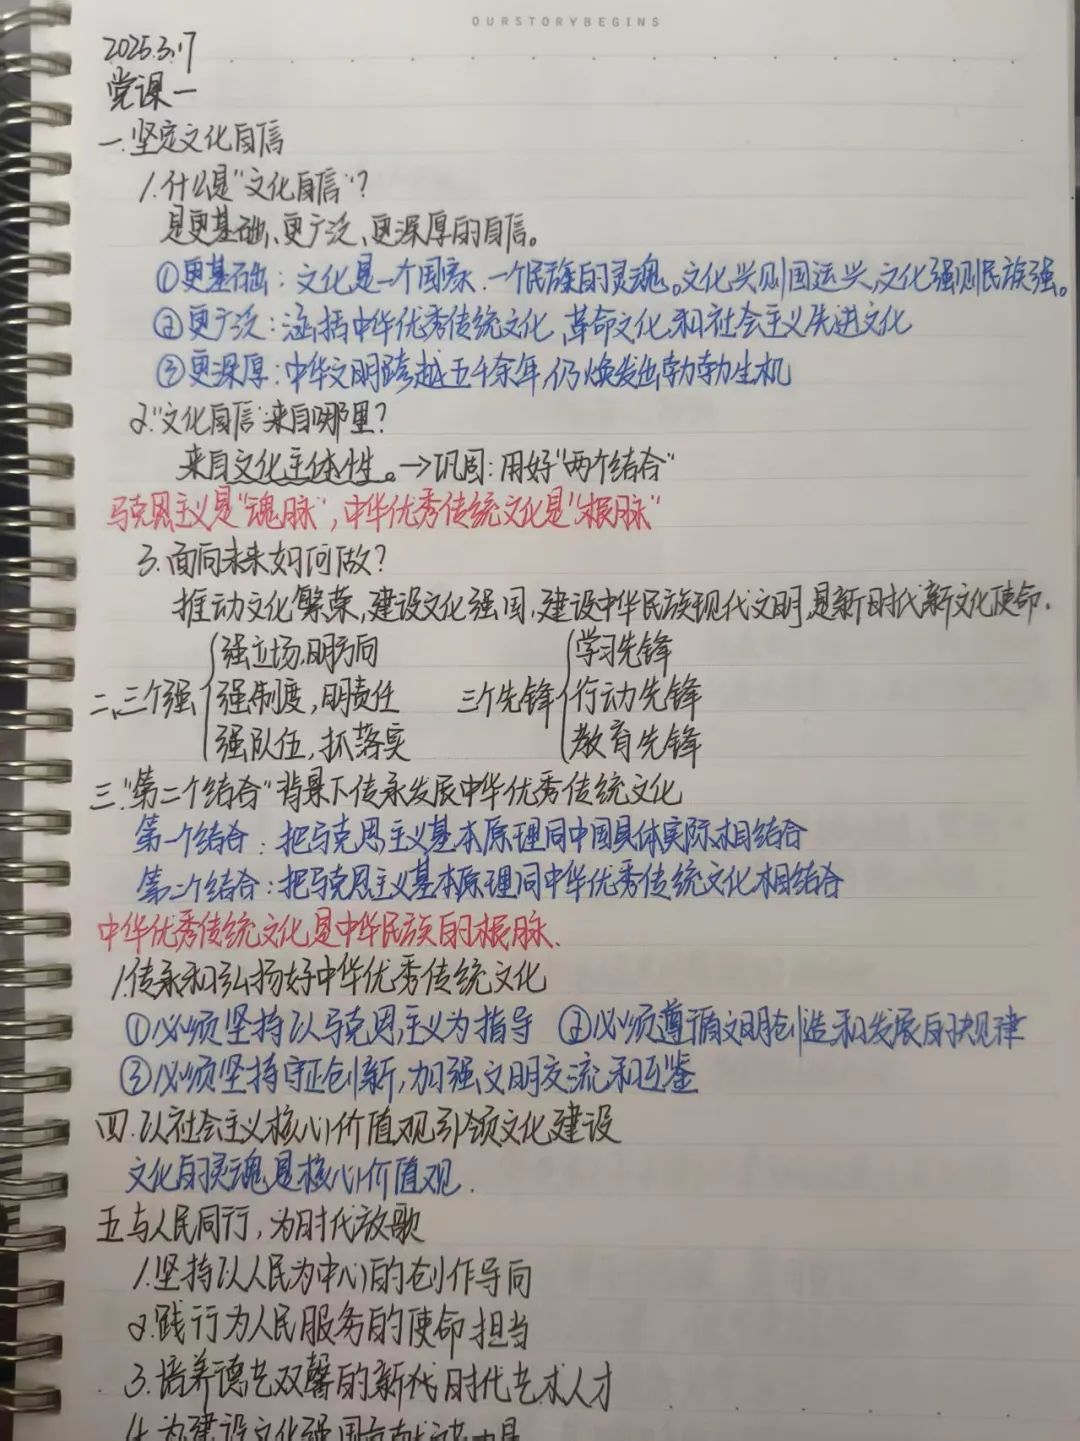 OURSTORYBEGINS
2025.3.17
党课一
一.坚定文化自信
1.什么是"文化自信"?
是更基础、更广泛、更深厚的自信。
①更基础：文化是一个国家、一个民族的灵魂。文化兴则国运兴,文化强则民族强。
②更广泛：涵括中华优秀传统文化,革命文化,和社会主义先进文化
③更深厚：中华文明跨越五千余年,仍焕发出勃勃生机
2."文化自信"来自哪里?
来自文化主体性。→巩固：用好"两个结合"
马克思主义是"魂脉",中华优秀传统文化是"根脉"
3.面向未来如何做?
推动文化繁荣,建设文化强国,建设中华民族现代文明,是新时代新文化使命.
强立场,明方向 学习先锋
二、三个强 强制度,明责任 三个先锋 行动先锋
强队伍,抓落实 教育先锋
三."第二个结合"背景下传承发展中华优秀传统文化
第一个结合：把马克思主义基本原理同中国具体实际相结合
第二个结合：把马克思主义基本原理同中华优秀传统文化相结合
中华优秀传统文化是中华民族的根脉.
1.传承和弘扬好中华优秀传统文化
①必须坚持以马克思主义为指导 ②必须遵循文明创造和发展的规律
③必须坚持守正创新,加强文明交流和互鉴
四.以社会主义核心价值观引领文化建设
文化的灵魂是核心价值观.
五与人民同行,为时代放歌
1.坚持以人民为中心的创作导向
2.践行为人民服务的使命担当
3.培养德艺双馨的新代时代艺术人才
4.为建设文化强国贡献